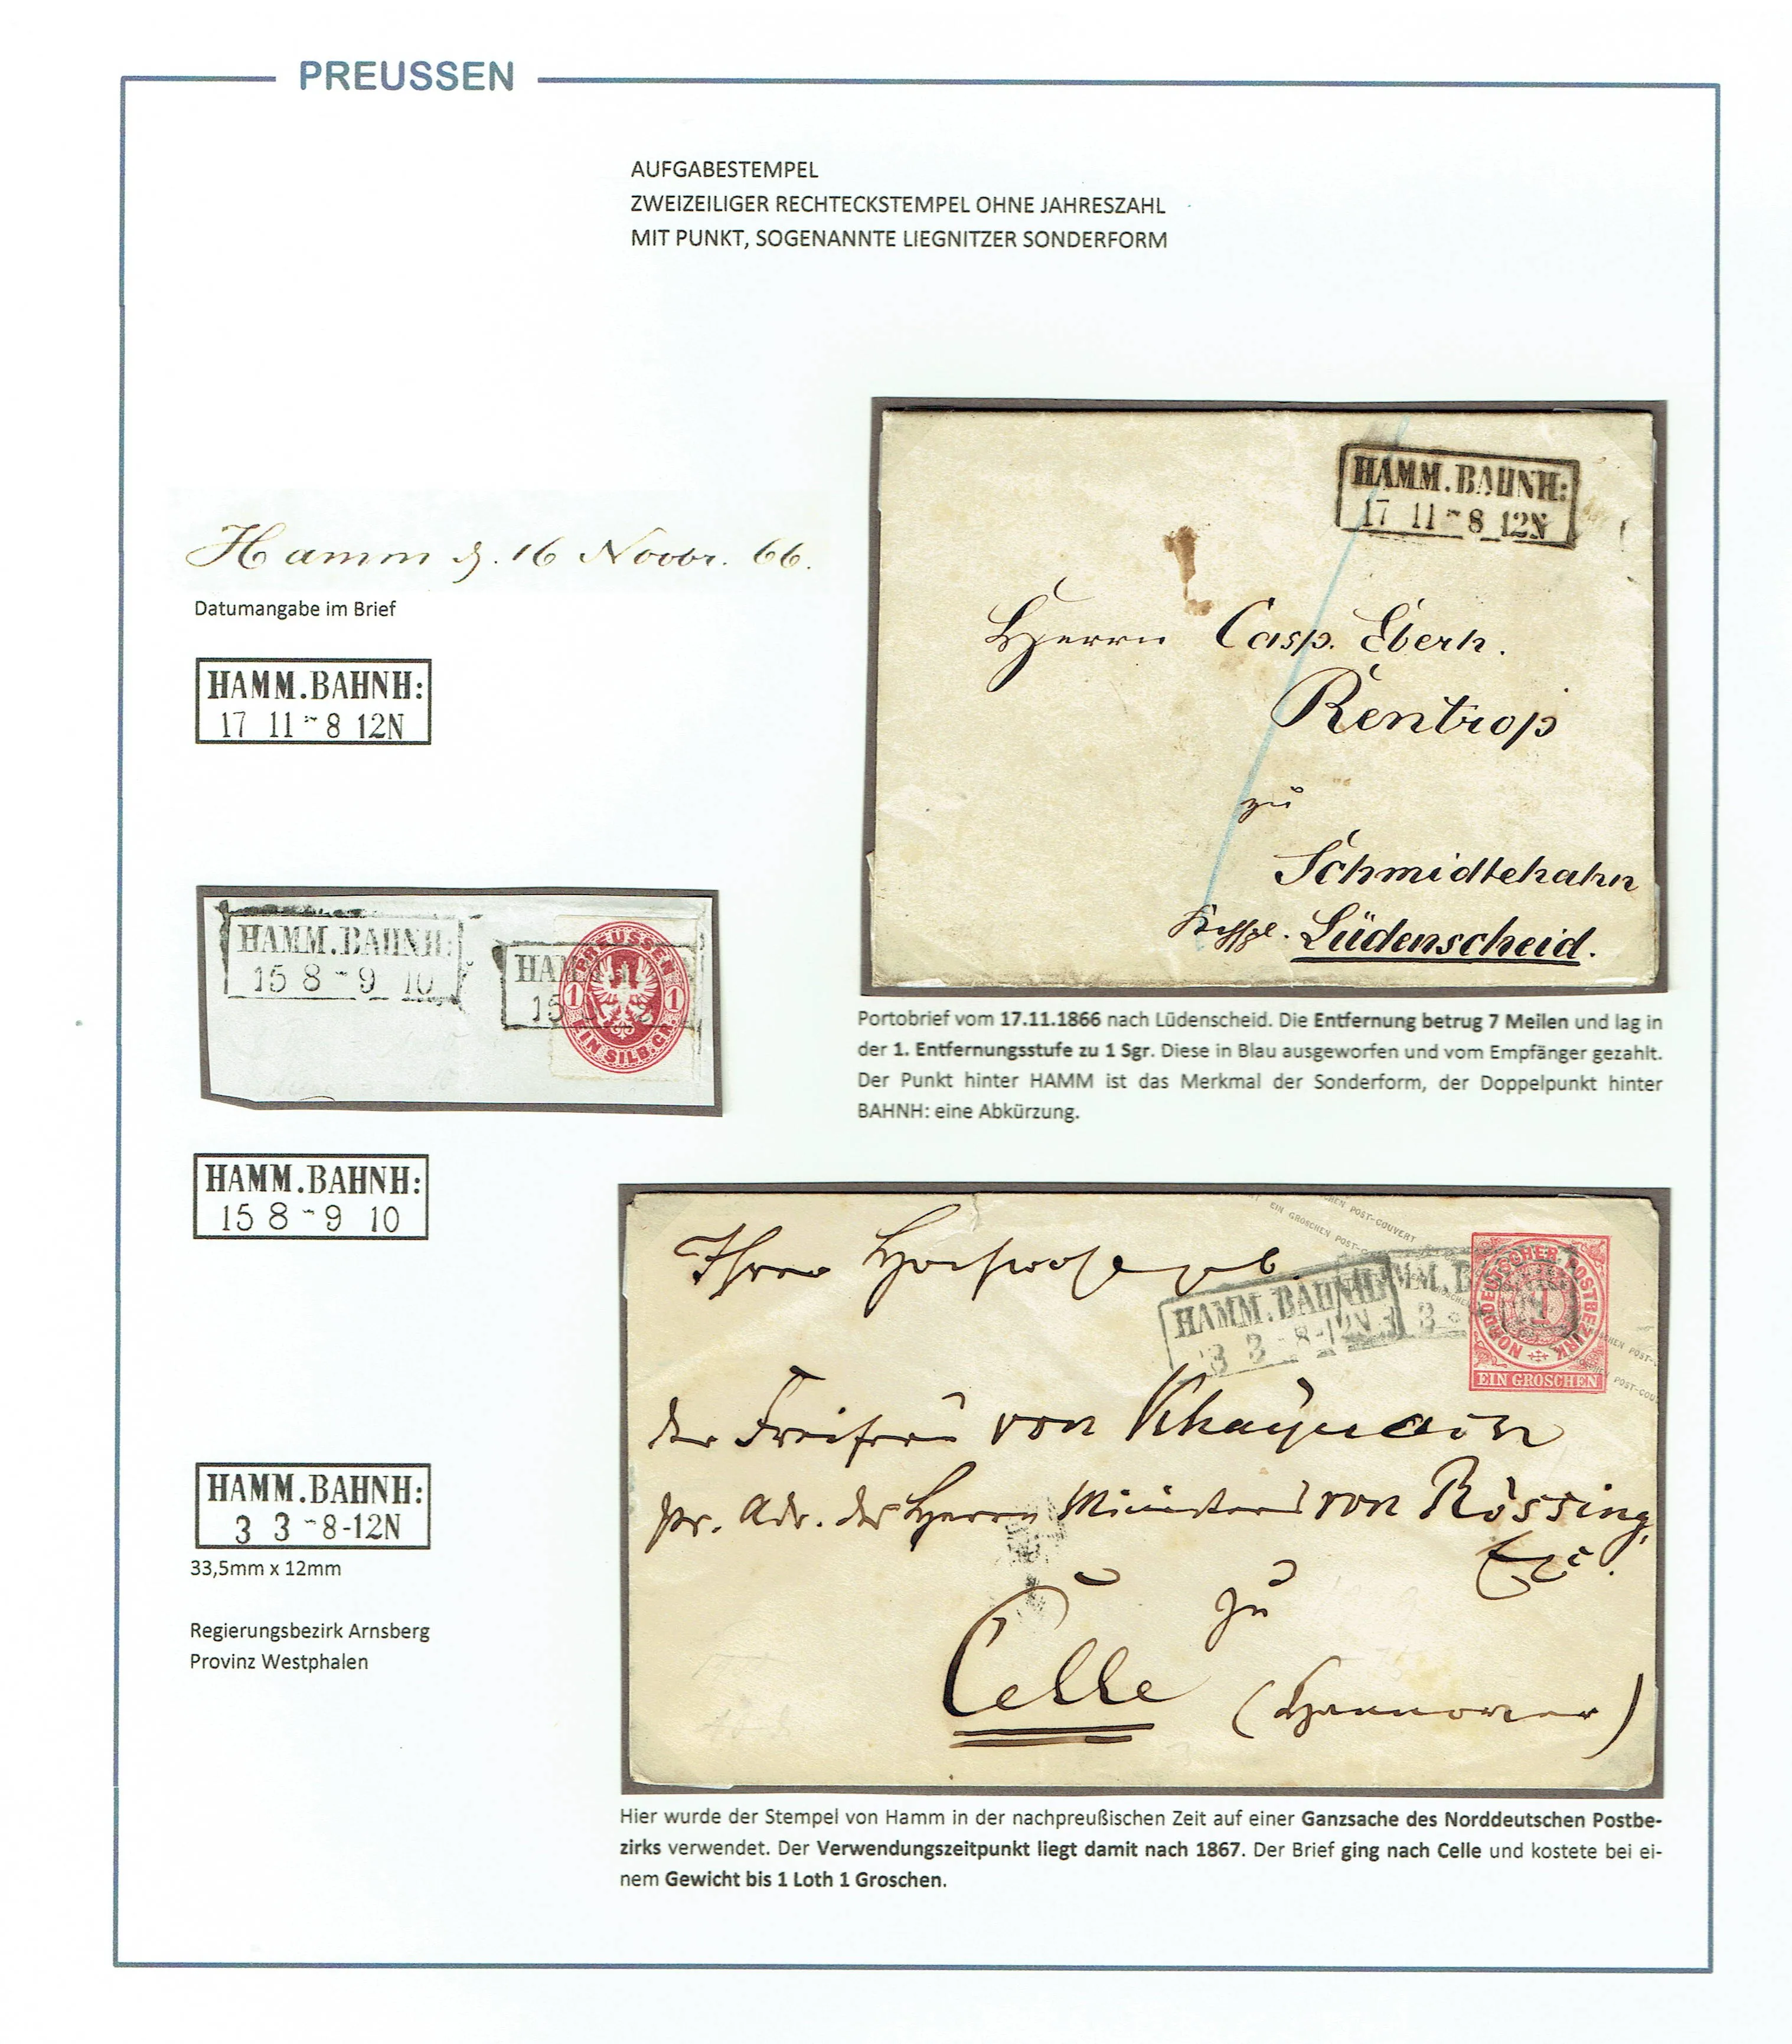 PREUSSEN
AUFGABESTEMPEL
ZWEIZEILIGER RECHTECKSTEMPEL OHNE JAHRESZAHL
MIT PUNKT, SOGENANNTE LIEGNITZER SONDERFORM
Hamm d. 16 Novbr. 66.
Datumangabe im Brief
HAMM.BAHNH:
17 11 - 8 12N
HAMM.BAHNH:
17 11 - 8 12N
Herrn Casp. Eberh.
Rentrop
zu
Schmidtehahn
Kirchspl. Lüdenscheid.
Portobrief vom 17.11.1866 nach Lüdenscheid. Die Entfernung betrug 7 Meilen und lag in
der 1. Entfernungsstufe zu 1 Sgr. Diese in Blau ausgeworfen und vom Empfänger gezahlt.
Der Punkt hinter HAMM ist das Merkmal der Sonderform, der Doppelpunkt hinter
BAHNH: eine Abkürzung.
HAMM.BAHNH:
15 8 - 9 10
HAM
15
PREUSSEN
1 1
EIN SILB.GR.
HAMM.BAHNH:
15 8 - 9 10
EIN GROSCHEN POST-COUVERT
Ihrer Hochwohlgeb.
HAMM.BAHNH:
3 3 - 8-12N
MM.B
3
NORDDEUTSCHER POSTBEZIRK
1
EIN GROSCHEN
der Freifrau von
pr. Adr. des Herrn Ministers von Rössing,
Exc.
zu
Celle (Hannover)
HAMM.BAHNH:
3 3 - 8-12N
33,5mm x 12mm
Regierungsbezirk Arnsberg
Provinz Westphalen
Hier wurde der Stempel von Hamm in der nachpreußischen Zeit auf einer Ganzsache des Norddeutschen Postbe-
zirks verwendet. Der Verwendungszeitpunkt liegt damit nach 1867. Der Brief ging nach Celle und kostete bei ei-
nem Gewicht bis 1 Loth 1 Groschen.